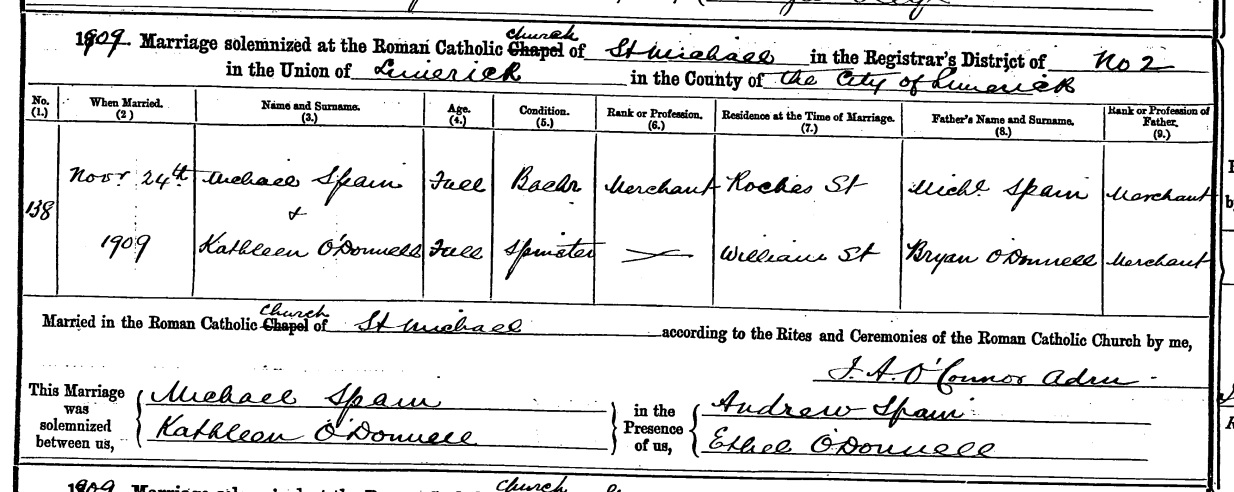 1909. Marriage solemnized at the Roman Catholic Church Chapel of St Michael in the Registrar's District of No 2
in the Union of Limerick in the County of the City of Limerick
No. (1.) When Married. (2) Name and Surname. (3.) Age. (4.) Condition. (5.) Rank or Profession. (6.) Residence at the Time of Marriage. (7.) Father's Name and Surname. (8.) Rank or Profession of Father. (9.)
Novr 24th Michael Spain Full Bachr Merchant Roches St Michl Spain Merchant
138 &
1909 Kathleen O'Donnell Full Spinster William St Bryan O'Donnell Merchant
Married in the Roman Catholic Church Chapel of St Michael according to the Rites and Ceremonies of the Roman Catholic Church by me,
J. A. O'Connor Adm
This Marriage was solemnized between us, Michael Spain in the Presence of us, Andrew Spain
Kathleen O'Donnell Ethel O'Donnell
1909. Church